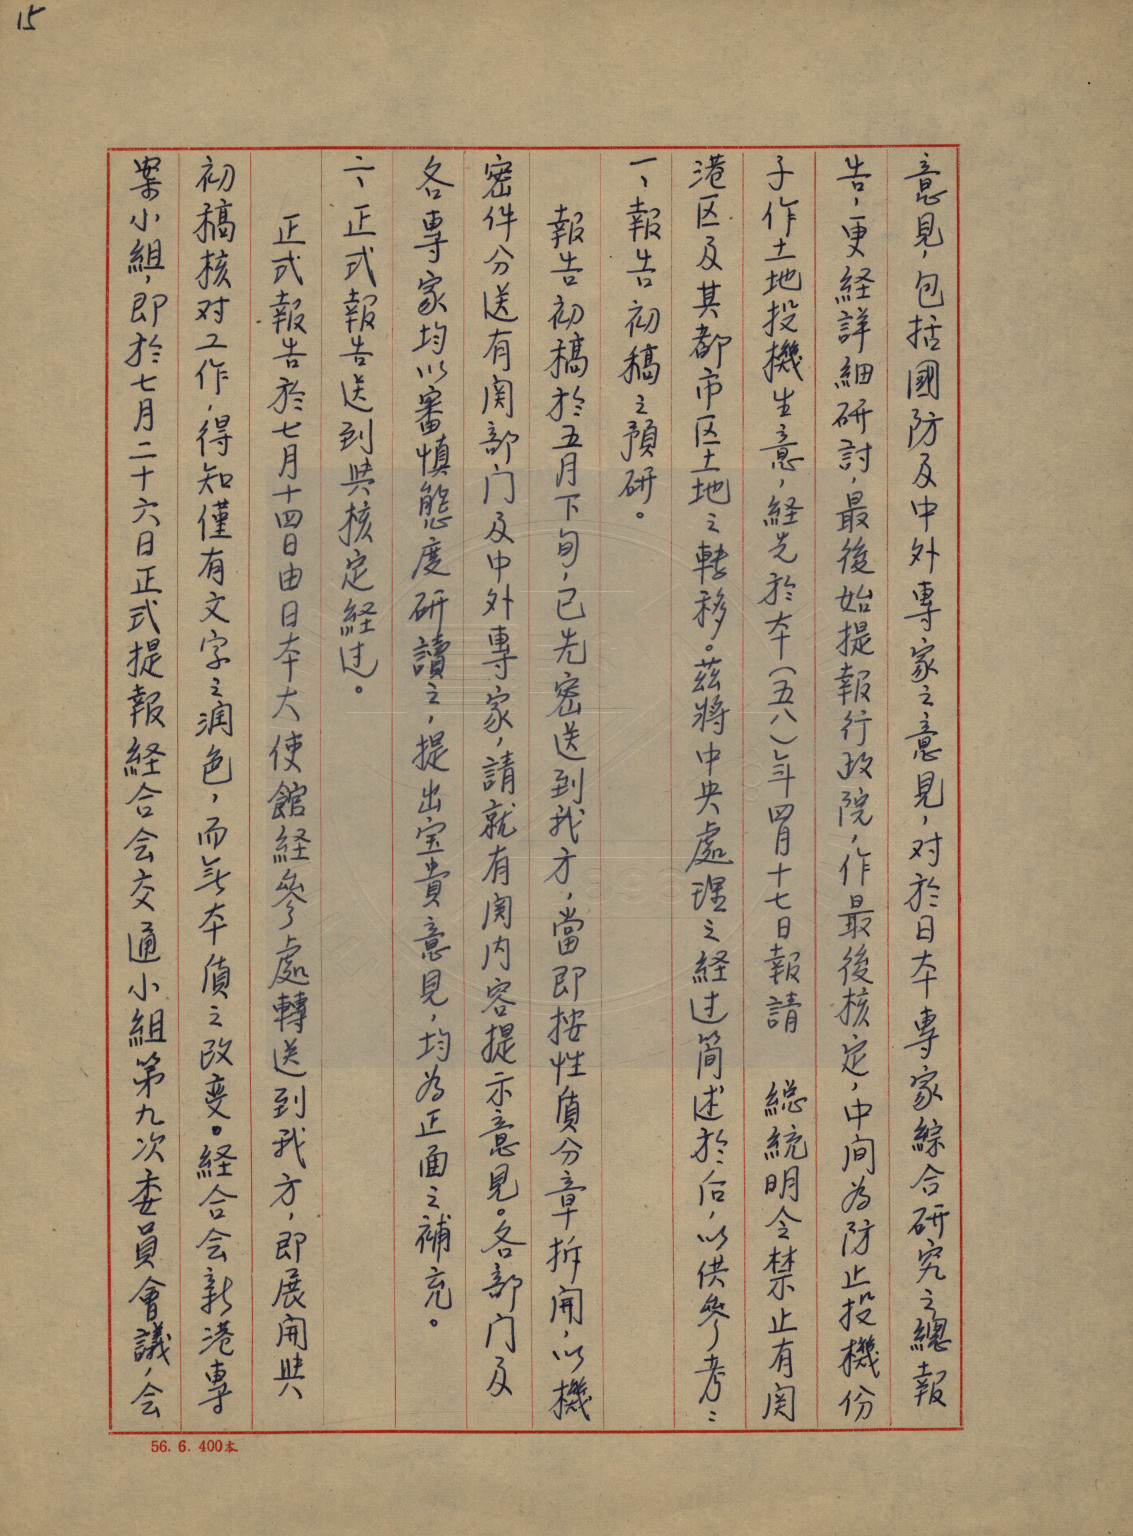 15
意見，包括國防及中外專家之意見，对於日本專家綜合研究之總報
告，更経詳細研討，最後始提報行政院，作最後核定，中间為防止投機份
子作土地投機生意，経先於本（五八）年四月十七日報請　総統明令禁止有関
港区及其都市区土地之轉移。茲將中央處理之経过简述於后，以供參考：
一、報告初稿之預研。
報告初稿於五月下旬，已先密送到我方，當即按性質分章拆開，以機
密件分送有関部门及中外專家，請就有関内容提示意見。各部门及
各專家均以審慎態度研讀之，提出宝貴意見，均為正面之補充。
二、正式報告送到與核定経过。
正式報告於七月十四日由日本大使館経參處轉送到我方，即展開與
初稿核对工作，得知僅有文字之润色，而無本質之改变。経合会新港專
案小組，即於七月二十六日正式提報経合会交通小組第九次委員會議，会
56. 6. 400本